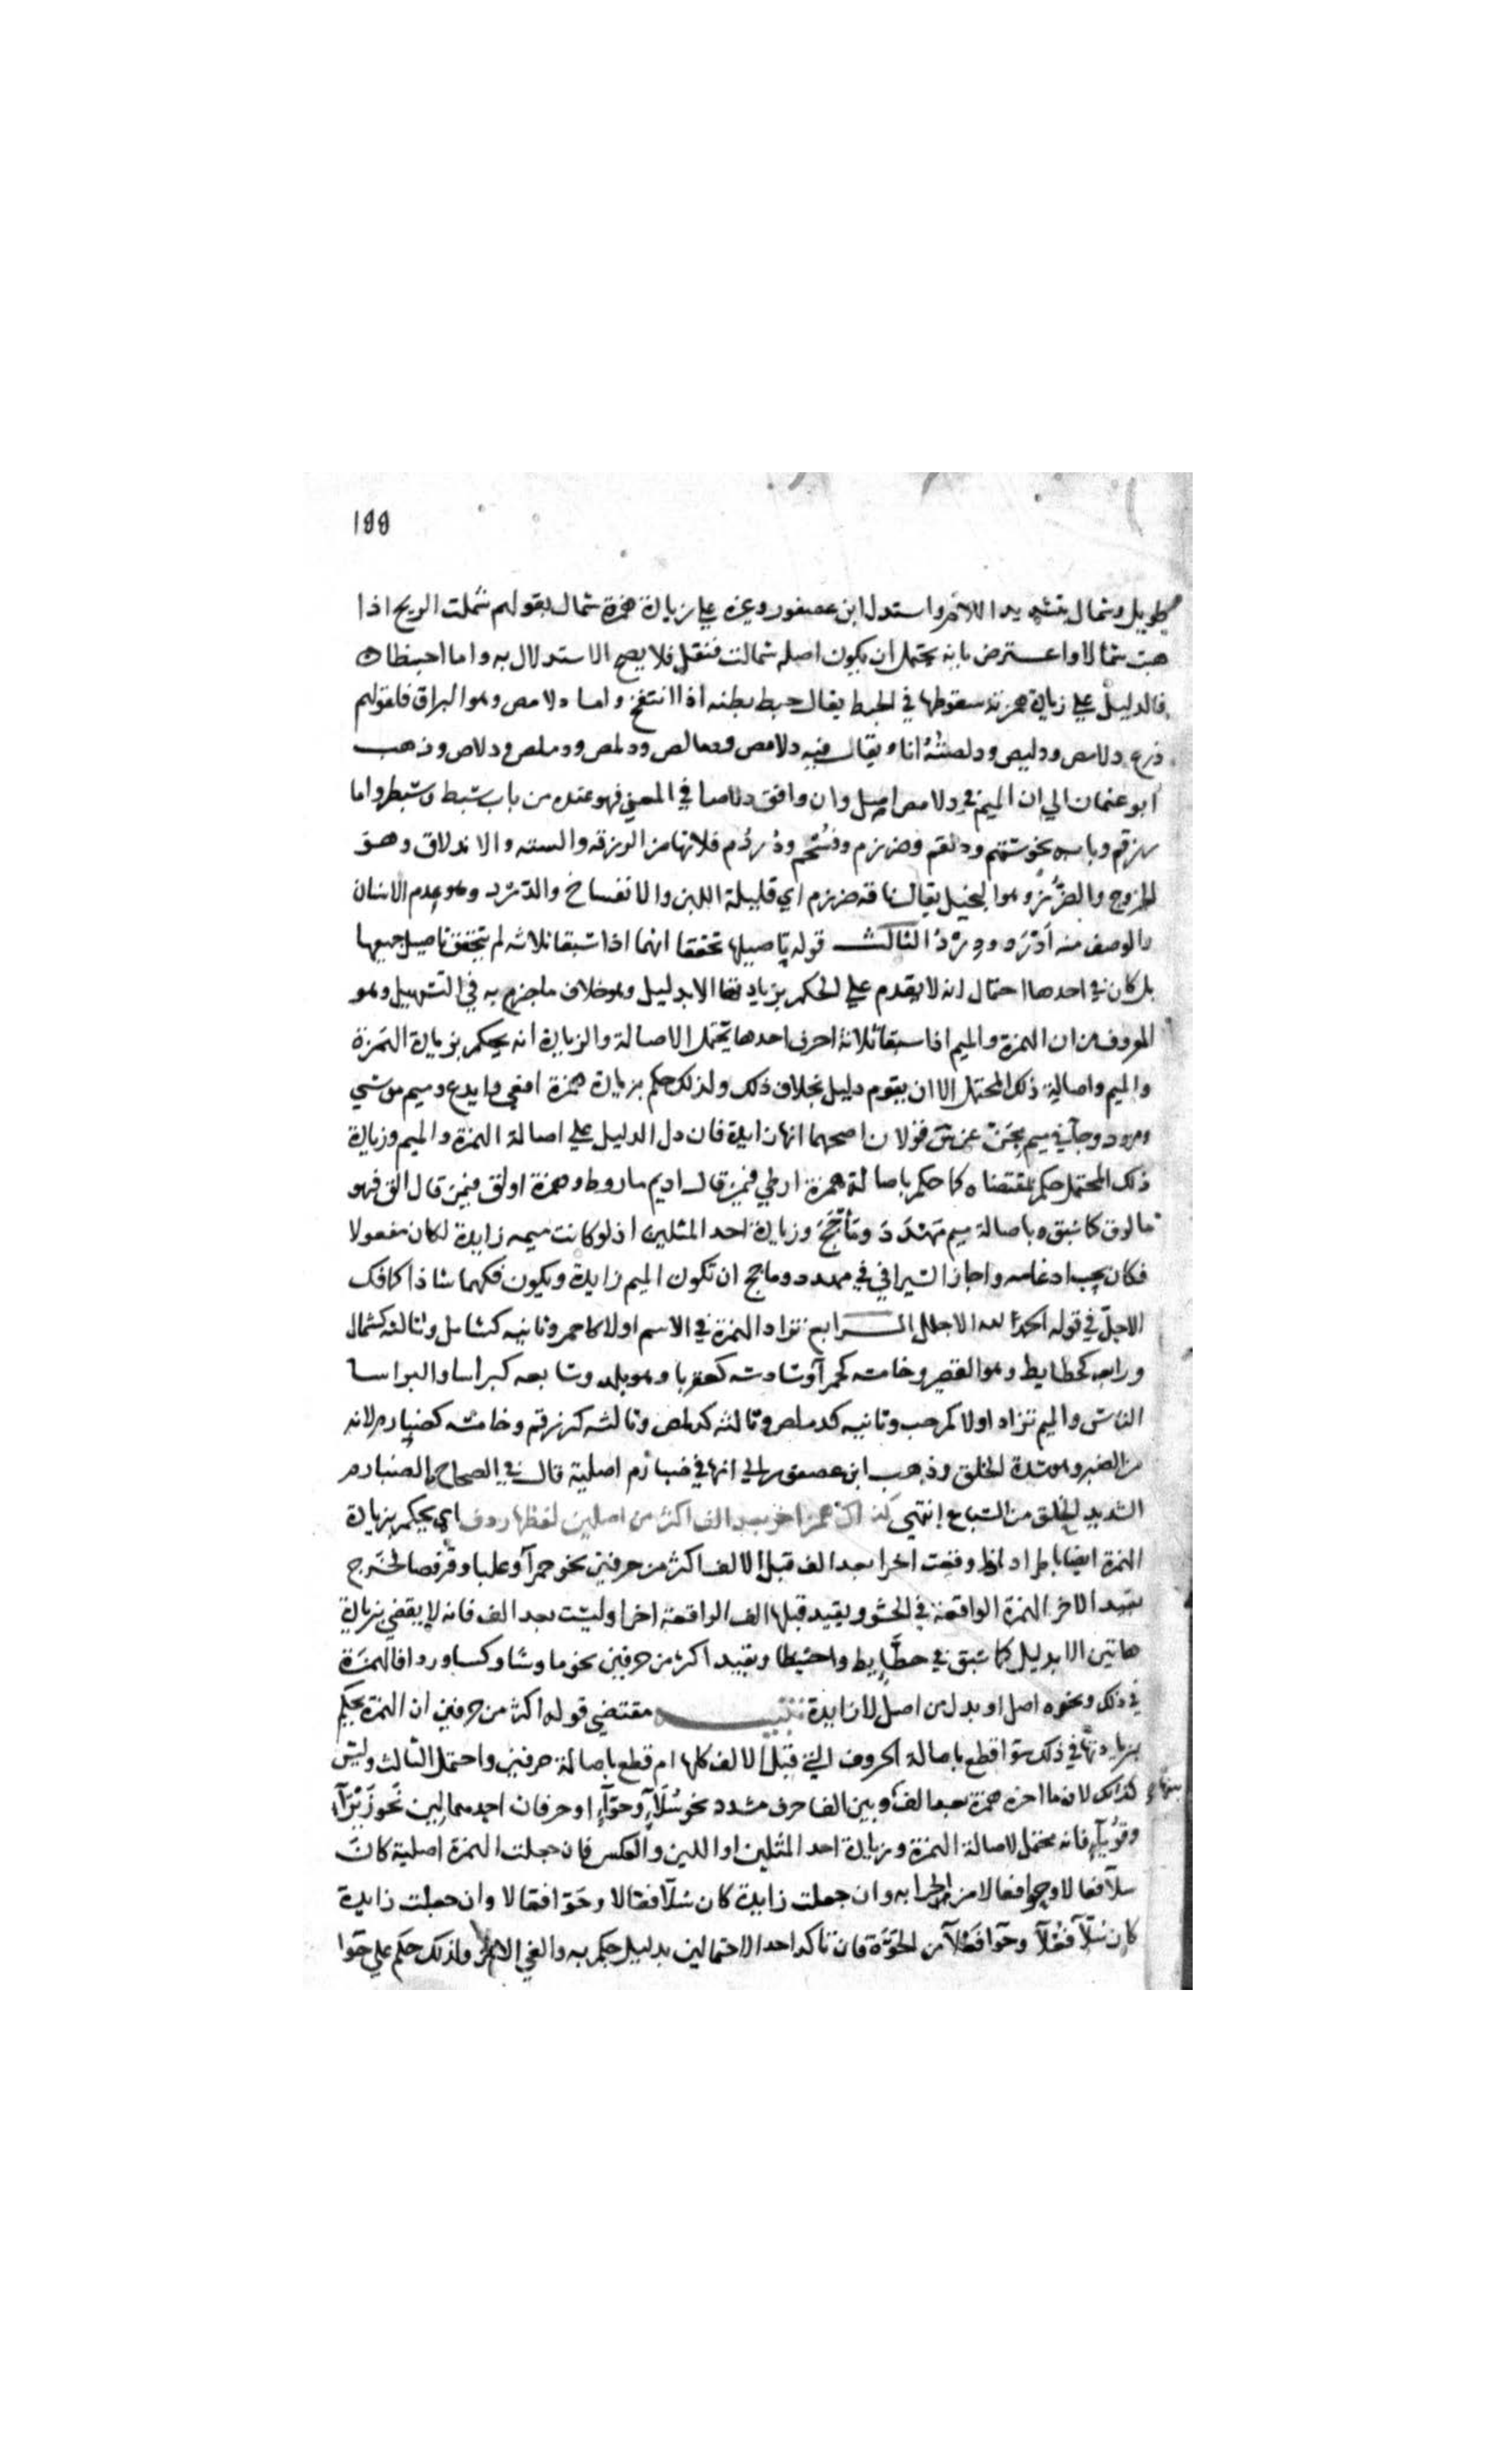 199
طويل وشمال بتشديد اللام واستدل ابن عصفور وغيره علي زيادة همزة شمال بقولهم شملت الريح اذا
هبت شمالا واعترض بانه يحتمل ان يكون اصله شمالت فنقل فلا يصح الاستدلال به واما احبنطا
فالدليل علي زيادة همزته سقوطها في الحبط يقال حبط بطنه اذا انتفخ واما دلامص وهو البراق فلقولهم
درع دلامص ودليص ودلصته انا ويقال فيه دلامص ودمالص ودلمص ودملص ودلاص وذهب
ابو عثمان الي ان الميم في دلامص اصل وان وافق دلاصا في المعني فهو عنده من باب سبط وسبطر واما
زرقم وبابه نحو ستهم ودلقم وضرزم وفسحم ودردم فلانها من الزرقه والسته والاندلاق وهو
الخروج والضرز وهو البخيل يقال ناقه ضرزم اي قليلة اللبن والانفساخ والدرد وهو عدم الاسنان
والوصف منه ادرد ودرد الثالث قوله تاصيلها تحققا انهما اذا سبقا ثلاثه لم يتحقق تاصيل جميعها
بل كان في احدها احتمال انه لا يقدم علي الحكم بزيادتهما الا بدليل وهو خلاف ما جزم به في التسهيل وهو
المعروف من ان الهمزة والميم اذا سبقا ثلاثة احرف احدها يحتمل الاصالة والزيادة انه يحكم بزيادة الهمزة
والميم واصالة ذلك المحتمل الا ان يقوم دليل بخلاف ذلك ولذلك حكم بزيادة همزة افعي وايدع وميم موسي
ومزود وجا في ميم مجن عن س قولان اصحهما انها زايدة فان دل الدليل علي اصالة الهمزة والميم وزيادة
ذلك المحتمل حكم بمقتضاه كما حكم باصالة همزة ارطي فيمن قال اديم ماروط وهمزة اولق فيمن قال الق فهو
مالوق كما سبق وباصالة ميم مهدد وماجج وزيادة احد المثلين اذ لو كانت ميمه زايدة لكان مفعولا
فكان يجب ادغامه واجاز السيرافي في مهدد وماجج ان تكون الميم زايدة ويكون فكهما شاذا كفك
الاجل في قوله الحمد لله الاجلل الرابع تزاد الهمزة في الاسم اولا كاحمر وثانيه كشامل وثالثه كشمال
ورابعه كحطايط وهو القصير وخامسه كحمرا وسادسه كعقربا وهو بلد وسابعه كبراسا والبراسا
الناس والميم تزاد اولا كمرحب وثانيه كدملص وثالثه كدلمص وثالثه كزرقم وخامسه كضبارم لانه
من الضبر وهو شدة الخلق وذهب ابن عصفور الي انها في ضبارم اصلية قال في الصحاح والضبارم
الشديد الخلق من السباع انتهي كذاك همز اخر بعد الف اكثر من اصلين لفظها ردف اي يحكم بزيادة
الهمزة ايضا باطراد اذا وقعت اخرا بعد الف قبل الالف اكثر من حرفين نحو حمرآ وعلبا وقرفصا فخرج
بقيد الاخر الهمزة الواقعة في الحشو وبقيد قبلها الف الواقعة اخرا وليست بعد الف فانه لا يقضي بزيادة
هاتين الا بدليل كما سبق في حطايط واحبنطا وبقيد اكثر من حرفين نحو ما وشا وكسا وردا فالهمزة
في ذلك ونحوه اصل او بدل من اصل لا زايدة تنبيه مقتضي قوله اكثر من حرفين ان الهمزة يحكم
بزيادتها في ذلك سوا قطع باصالة الحروف التي قبل الالف كلها ام قطع باصالة حرفين واحتمل الثالث وليس
كذلك لان ما اخره همزة بعد الف وبين الفا حرف مشدد نحو سلآ وحوآ او حرفان احدهما لين نحو زيزآ
بينها
وقوبآ فانه محتمل لاصالة الهمزة وزيادة احد المثلين او اللين والعكس فان جعلت الهمزة اصلية كان
سلآ فعالا وحوا فعالا من الحوايه وان جعلت زايدة كان سلآ فعالا وحوا فعالا وان جعلت زايدة
كان سلآ فعلآ وحوا فعلآ من الحوة فان تاكد احد الاحتمالين بدليل حكم به والغي الاخر ولذلك حكم علي حوا